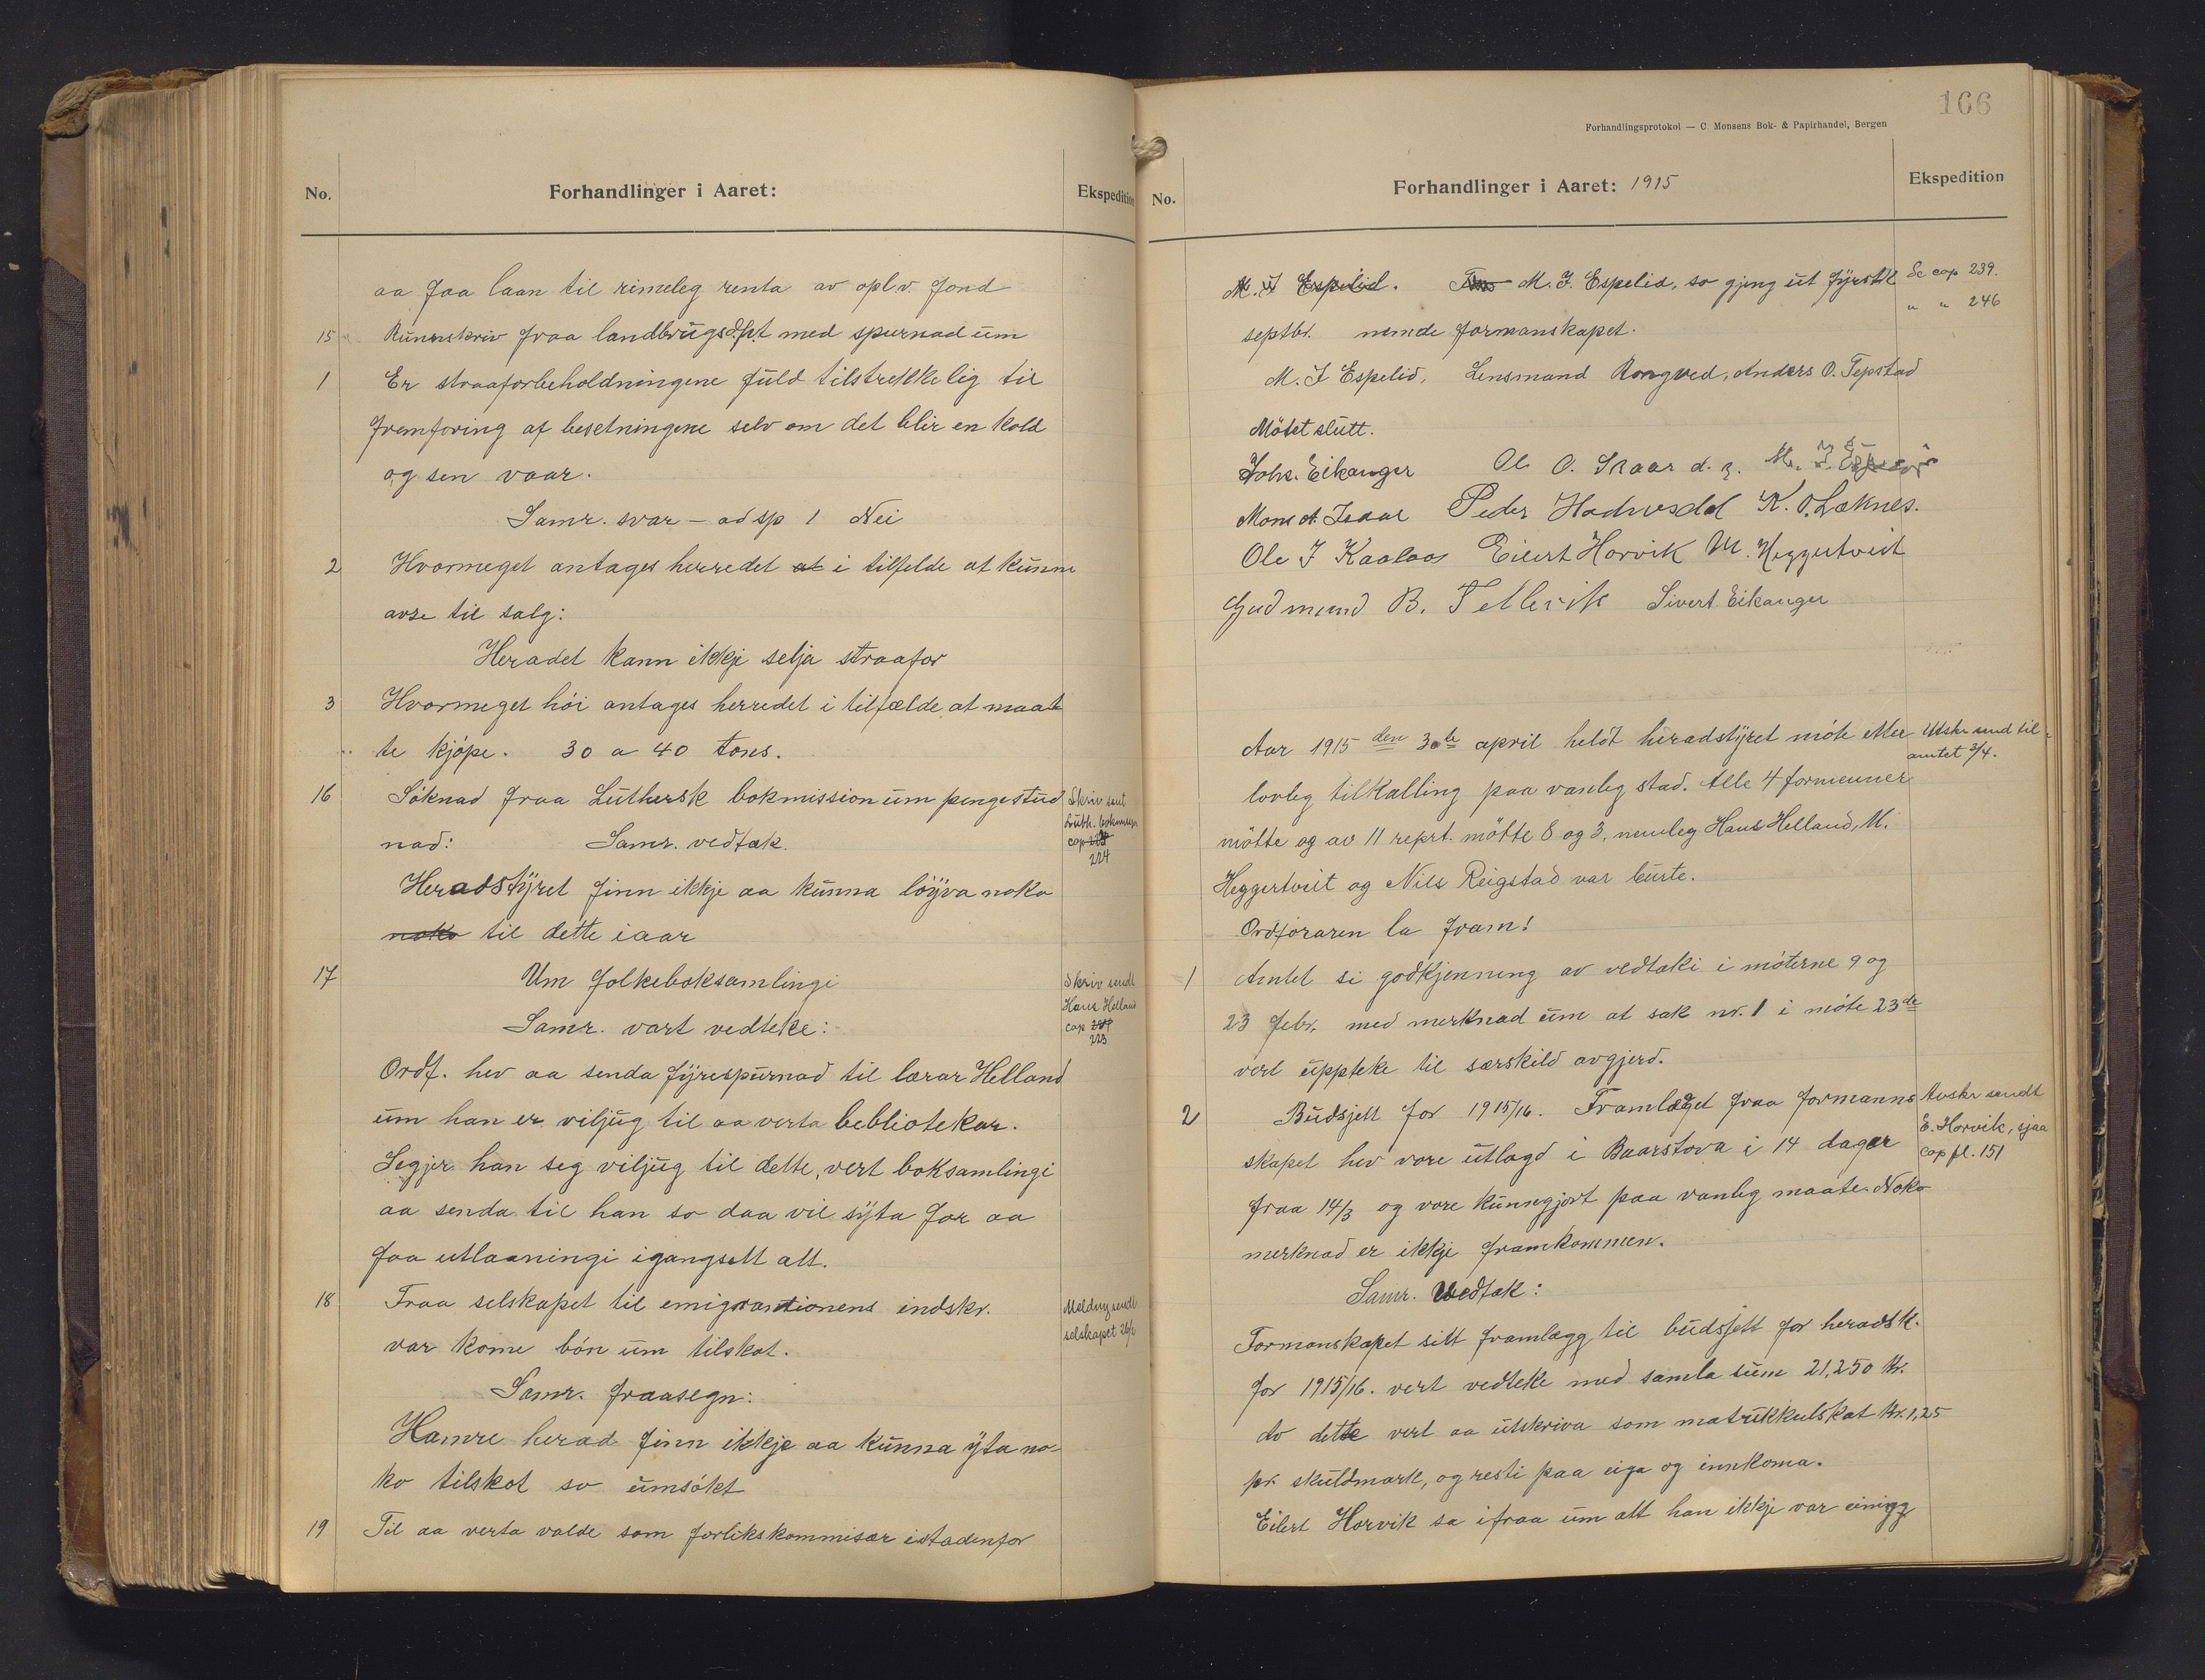 No.
Forhandlinger i Aaret:
Ekspedition
aa faa laan til rimeleg renta av opl.v. fond
15 Runnskriv fraa landbrugsdpt med spurnad um
1 Er straaforbeholdningene fuld tilstrekkelig til
fremforing af besetningene selv om det blir en kold
og sen vaar.
Samr. svar – ad sp 1 Nei
2 Hvormeget antages herredet at i tilfelde at kunne
avse til salg:
Heradet kann ikkje selja straafor
3 Hvormeget höi antages herredet i tilfælde at maat
te kjöpe. 30 a 40 tons.
16 Söknad fraa Luthersk bokmission um pengestud
nad: Samr. vedtak.
Skriv sent
Luth. bokmisjon
cap
224
Heradstyret finn ikkje aa kunna löyva noko
noko til dette iaar
17 Um folkeboksamlingi
Samr. vart vedteke:
Skriv sendt
Hans Helland
cap
223
Ordf. hev aa senda fyrespurnad til lærar Helland
um han er viljug til aa verta bebliotekar.
Segjer han seg viljug til dette, vert boksamlingi
aa senda til han so daa vil syta for aa
faa utlaaningi igangsett att.
18 Fraa selskapet til emigrantionens indskr.
var kome bön um tilskot.
Melding sendt
selskapet
Samr. fraasegn:
Hamre herad finn ikkje aa kunna yta no-
ko tilskot so umsökt
19 Til aa verta valde som forlikskommisær istadenfor
166
Forhandlingsprotokol — C. Monsens Bok- & Papirhandel, Bergen
No.
Forhandlinger i Aaret: 1915
Ekspedition
M. J Espelid. M. J. Espelid, so gjeng ut fyrst i
Se cap 239.
" " 246
septbr. nemde formanskapet.
M. J Espelid, Lensmand Rongved, Anders O. Tepstad
Mötet slutt.
Johs. Eikanger Ole O. Skaar d. y. M. J. Espelid
Mons A. Isdal Peder Hodnesdal K. O. Læknes.
Ole J Kaalaas Eilert Horvik M. Heggertveit
Gudmund B. Tellevik Sivert Eikanger
Aar 1915 den 30te april heldt heradstyret möte etter
Utskr send til
amtet 3/4.
lovleg tilkalling paa vanleg stad. Alle 4 formenner
mötte og av 11 reprt. mötte 8 og 3, nemleg Hans Helland, M.
Heggertveit og Nils Reigstad var burte.
Ordföraren la fram!
1 Amtet si godkjenning av vedtaki i möterne 9 og
23 febr. med merknad um at sak nr. 1 i möte 23de
vert uppteke til særskild avgjerd.
2 Budsjett for 1915/16. Framlægget fraa formanns
Avskr sendt
E. Horvik, sjaa
cap fl. 151
skapet hev vore utlagd i Baarstova i 14 dagar
fraa 14/3 og vore kunngjort paa vanleg maate. Noko
merknad er ikkje framkommen.
Samr. Vedtak:
Formanskapet sitt framlægg til budsjett for heradsk.
for 1915/16. vert vedteke med samla sum 21,250 kr.
Av dette vert aa utskriva som matrikkulskat kr. 1,25
pr. skuldmark, og resti paa eiga og innkoma.
Eilert Horvik sa ifraa um att han ikkje var einigg